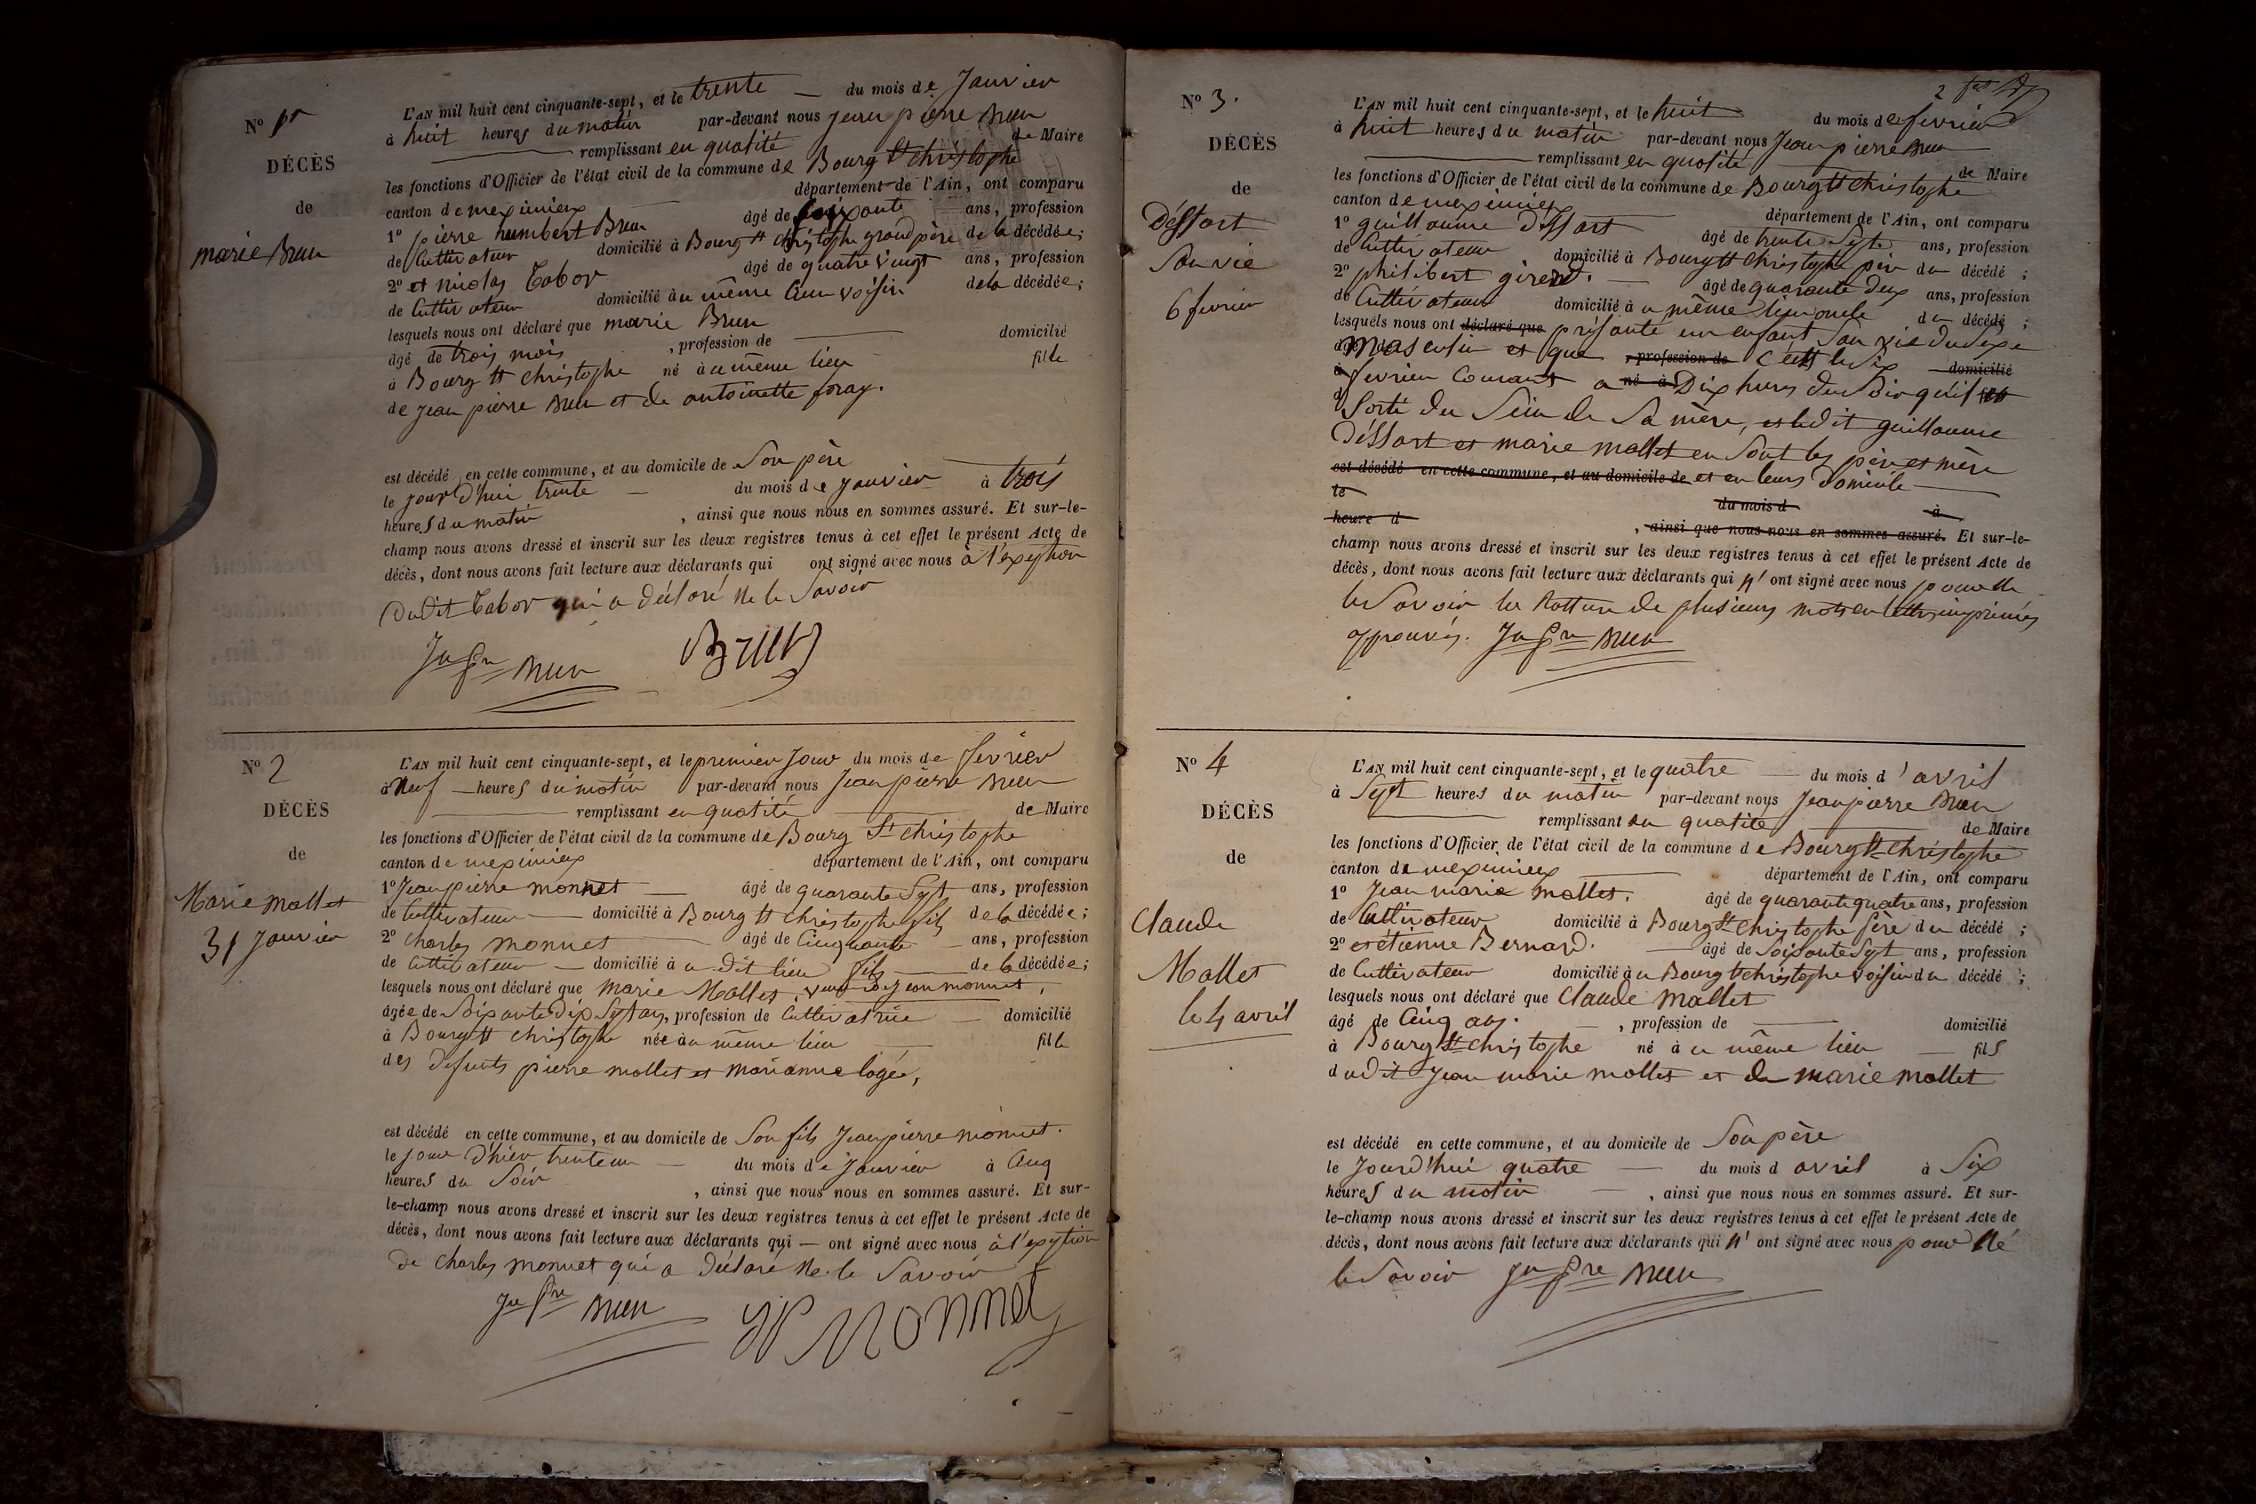 N° 1er
DÉCÈS
de
marie Brun
L'AN mil huit cent cinquante-sept, et le trente du mois de Janvier
à huit heures du matin par-devant nous jean pierre Brun
remplissant en qualité de Maire
les fonctions d'Officier de l'état civil de la commune de Bourg St christophe
canton de meximieux département de l'Ain, ont comparu
1° pierre humbert Brun âgé de soixante ans, profession
de Cultivateur domicilié à Bourg St christophe grand père de la décédée;
2° et nicolas Tabor âgé de quatre vingt ans, profession
de Cultivateur domicilié au même lieu voisin de la décédée;
lesquels nous ont déclaré que marie Brun
âgé de trois mois , profession de domicilié
à Bourg St christophe né au même lieu fille
de jean pierre Brun et de antoinette foray.
est décédé en cette commune, et au domicile de Son père
le jour d'hui trente du mois de janvier à trois
heures du matin , ainsi que nous nous en sommes assuré. Et sur-le-
champ nous avons dressé et inscrit sur les deux registres tenus à cet effet le présent Acte de
décès, dont nous avons fait lecture aux déclarants qui ont signé avec nous à l'exeption
Dudit Tabor qui a déclaré ne le Savoir
Jn Pre Brun Brun
N° 2
DÉCÈS
de
Marie Mallet
31 Janvier
L'AN mil huit cent cinquante-sept, et le premier Jour du mois de fevrier
à Neuf heures du matin par-devant nous Jean pierre Brun
remplissant en qualité de Maire
les fonctions d'Officier de l'état civil de la commune de Bourg St christophe
canton de meximieux département de l'Ain, ont comparu
1° Jean pierre monnet âgé de quarante Sept ans, profession
de Cultivateur domicilié à Bourg St christophe fils de la décédée;
2° Charles monnet âgé de Cinquante ans, profession
de Cultivateur domicilié au dit lieu fils de la décédée;
lesquels nous ont déclaré que marie Mallet, veuve de jean monnet,
âgée de Soixante Dix Sept ans, profession de Cultivatrice domicilié
à Bourg St christophe née au même lieu fille
des défunts pierre mollet et marianne logée,
est décédé en cette commune, et au domicile de Son fils Jean pierre monnet.
le jour d'hier trente un du mois de janvier à Cinq
heures du Soir , ainsi que nous nous en sommes assuré. Et sur-
le-champ nous avons dressé et inscrit sur les deux registres tenus à cet effet le présent Acte de
décès, dont nous avons fait lecture aux déclarants qui — ont signé avec nous à l'exeption
de Charles monnet qui a déclaré ne le Savoir
Jn Pre Brun JP Monnet
2
N° 3.
DÉCÈS
de
Déssart
San vie
6 fevrier
L'AN mil huit cent cinquante-sept, et le huit du mois de fevrier
à huit heures du matin par-devant nous Jean pierre Brun
remplissant en qualité de Maire
les fonctions d'Officier de l'état civil de la commune de Bourg St christophe
canton de meximieux département de l'Ain, ont comparu
1° guillaume Déssart âgé de trente Sept ans, profession
de Cultivateur domicilié à Bourg St christophe père du décédé ;
2° philibert girerd. âgé de quarante deux ans, profession
de Cultivateur domicilié au même lieu oncle du décédé ;
lesquels nous ont déclaré que présanté un enfant San vie du Sexe
masculin et que , profession de C'est le Six domicilié
à fevrier Courant a né à Dix heures du Soir qu'il est
Sorté du Sein de Sa mère, et ledit guillaume
Déssart et marie mallet en Sont les père et mère
est décédé en cette commune, et au domicile de et en leurs Domicile
le du mois d à
heure d , ainsi que nous nous en sommes assuré. Et sur-le-
champ nous avons dressé et inscrit sur les deux registres tenus à cet effet le présent Acte de
décès, dont nous avons fait lecture aux déclarants qui n' ont signé avec nous pour ne
le Savoir la Rature de plusieurs mots en lettres imprimés
approuvés. Jn Pre Brun
N° 4
DÉCÈS
de
Claude
Mallet
le 4 avril
L'AN mil huit cent cinquante-sept, et le quatre du mois d'avril
à Sept heures du matin par-devant nous Jean pierre Brun
remplissant en qualité de Maire
les fonctions d'Officier de l'état civil de la commune de Bourg St christophe
canton de meximieux département de l'Ain, ont comparu
1° Jean marie mallet. âgé de quarante quatre ans, profession
de Cultivateur domicilié à Bourg St christophe père du décédé ;
2° et étienne Bernard. âgé de Soixante Sept ans, profession
de Cultivateur domicilié au Bourg St christophe voisin du décédé ;
lesquels nous ont déclaré que Claude mallet
âgé de Cinq ans. , profession de domicilié
à Bourg St christophe né au même lieu fils
dudit Jean marie mollet et de marie mallet
est décédé en cette commune, et au domicile de Son père
le Jourd'hui quatre du mois d avril à Six
heures du matin , ainsi que nous nous en sommes assuré. Et sur-
le-champ nous avons dressé et inscrit sur les deux registres tenus à cet effet le présent Acte de
décès, dont nous avons fait lecture aux déclarants qui n' ont signé avec nous pour Né
le Savoir Jn Pre Brun